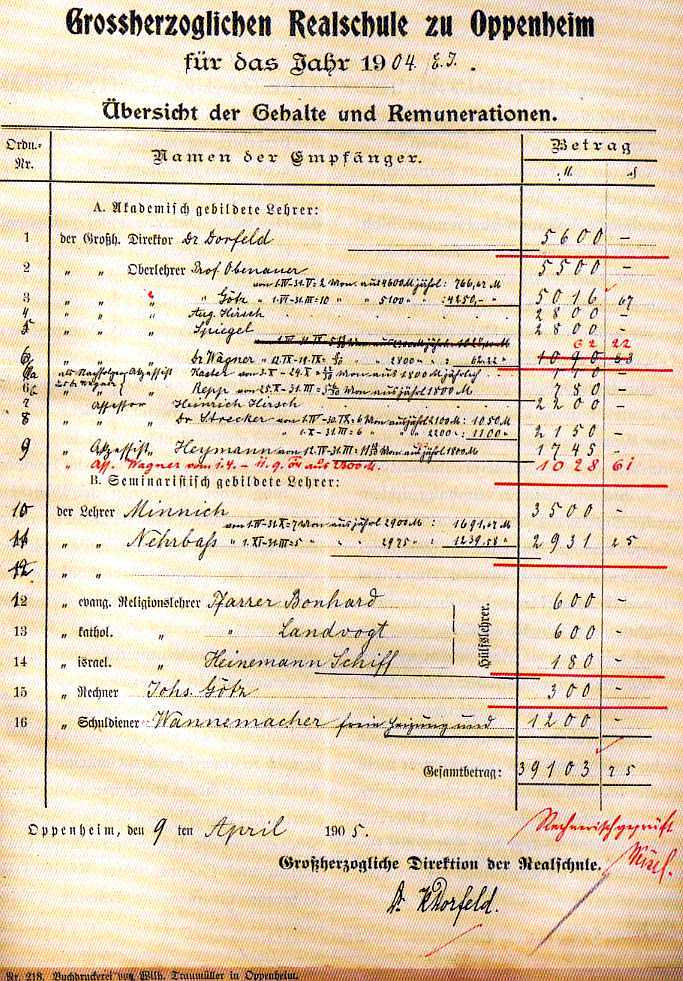 Grossherzoglichen Realschule zu Oppenheim
für das Jahr 1904 E.J.
Übersicht der Gehalte und Remunerationen.
Ordn.-Nr. Namen der Empfänger. Betrag
M.
A. Akademisch gebildete Lehrer:
1 der Großh. Direktor Dr Dorfeld 5600 –
2 „ „ Oberlehrer Prof. Obenauer 5500 –
von 1.IV-31.V=2 Mon. aus 4600M jährl: 766,67 M
3 „ „ „ „ Götz „ 1.VI-31.III=10 „ „ 5100 „ „ : 4250,- „ 5016 67
4 „ „ „ Aug. Hirsch 2800 –
5 „ „ „ Spiegel 2800 –
62 22
6 „ „ Dr Wagner „ 12.IX-19.IX= „ „ 2800 „ „ : 62.22 „ 1090 83
6a als Akzessist Kaster von 24.X Mon. aus 1800M jährlich 110 –
6b „ „ Repp von 31.III= Mon. aus jährl 1800M 780 –
7 Assessor Heinrich Hirsch 2200 –
8 „ „ Dr. Strecker von 1.IV-30.IX=6 Mon. aus jährl 2100M: 1050M
„ 1.X-31.III=6 „ „ 2200 „ : 1100 „ 2150 –
9 „ Akzessist Heymann von 12.IV-31.III= Mon. aus jährl 1800M 1745 –
„ Ass. Wagner vom 1.4. – 11.9.04 aus 2300 M. 1028 61
B. Seminaristisch gebildete Lehrer:
10 der Lehrer Minnich 3500 –
von 1.IV-31.X=7 Mon. aus jährl 2900M : 1691,67M
11 „ „ Nehrbass „ 1.XI-31.III=5 „ „ 2975 „ : 1239.58 „ 2931 25
12 „ „
12 „ evang. Religionslehrer Pfarrer Bonhard 600 –
13 „ kathol. „ „ Landvogt 600 –
14 „ israel. „ Heinemann Schiff 180 –
Hülfslehrer.
15 „ Rechner Johs. Götz 300 –
16 „ Schuldiener Wannemacher freie Heizung und 1200 –
Gesamtbetrag: 39103 25
Oppenheim, den 9 ten April 1905.
Rechnerisch geprüft
Großherzogliche Direktion der Realschule.
Dr. K Dorfeld.
Nr. 218. Buchdruckerei von Wilh. Traumüller in Oppenheim.